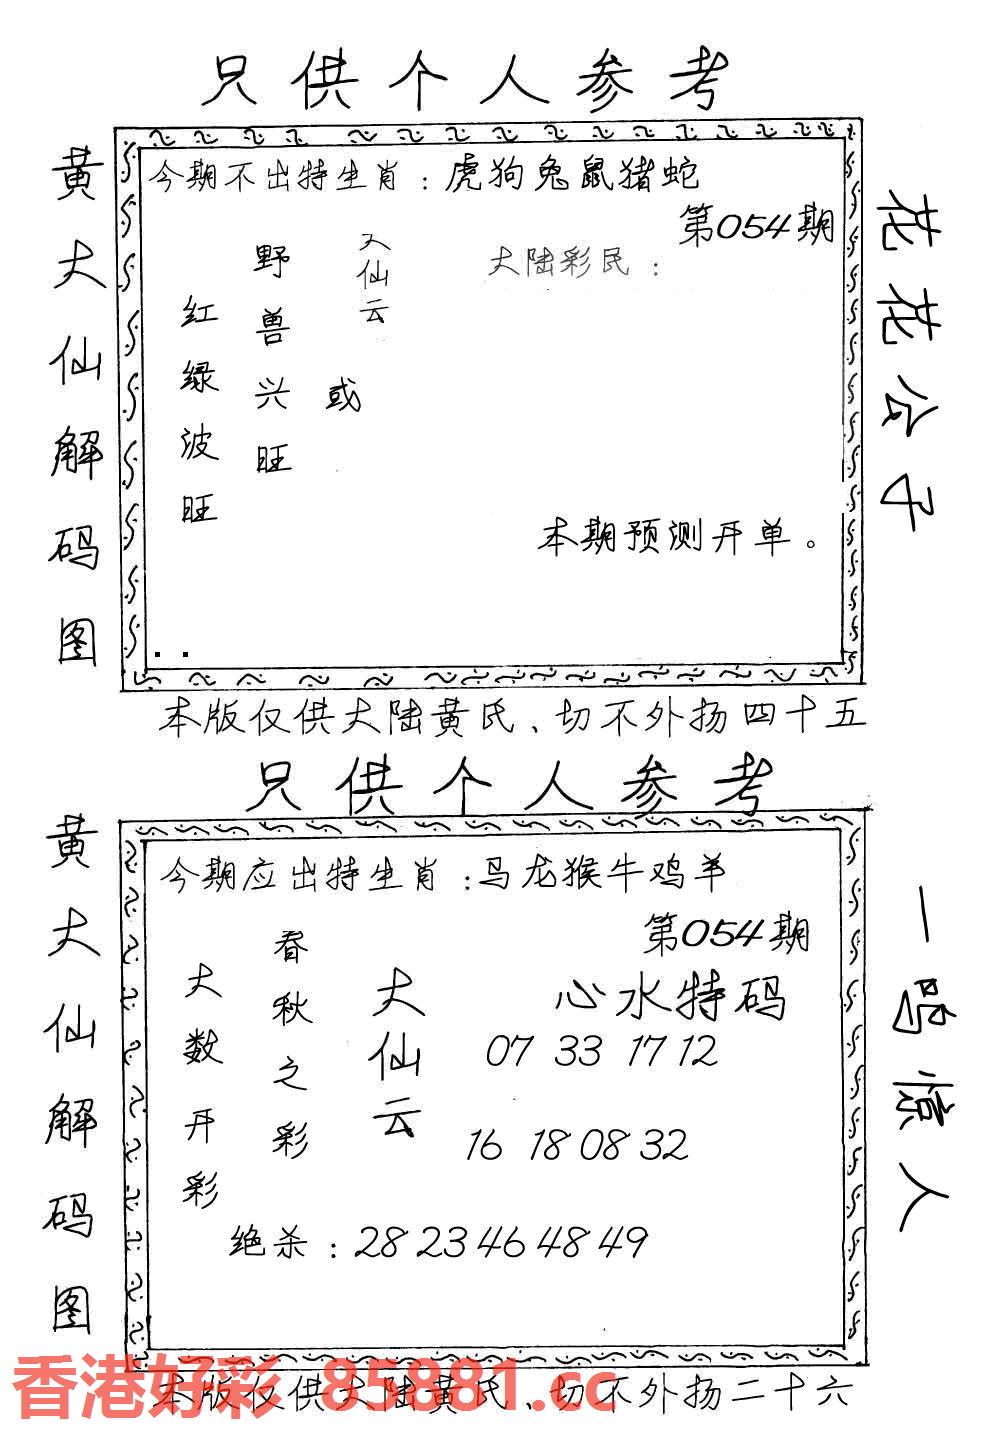 只供个人参考
黄大仙解码图
今期不出特生肖：虎狗兔鼠猪蛇
第054期
大仙云
大陆彩民：
野兽兴旺
或
红绿波旺
本期预测开单。
花花公子
本版仅供大陆黄氏、切不外扬四十五
只供个人参考
黄大仙解码图
今期应出特生肖：马龙猴牛鸡羊
第054期
春秋之彩
大数开彩
大仙云
心水特码
07 33 17 12
16 18 08 32
绝杀：28 23 46 48 49
一鸣惊人
香港好彩 85881.cc
本版仅供大陆黄氏、切不外扬二十六